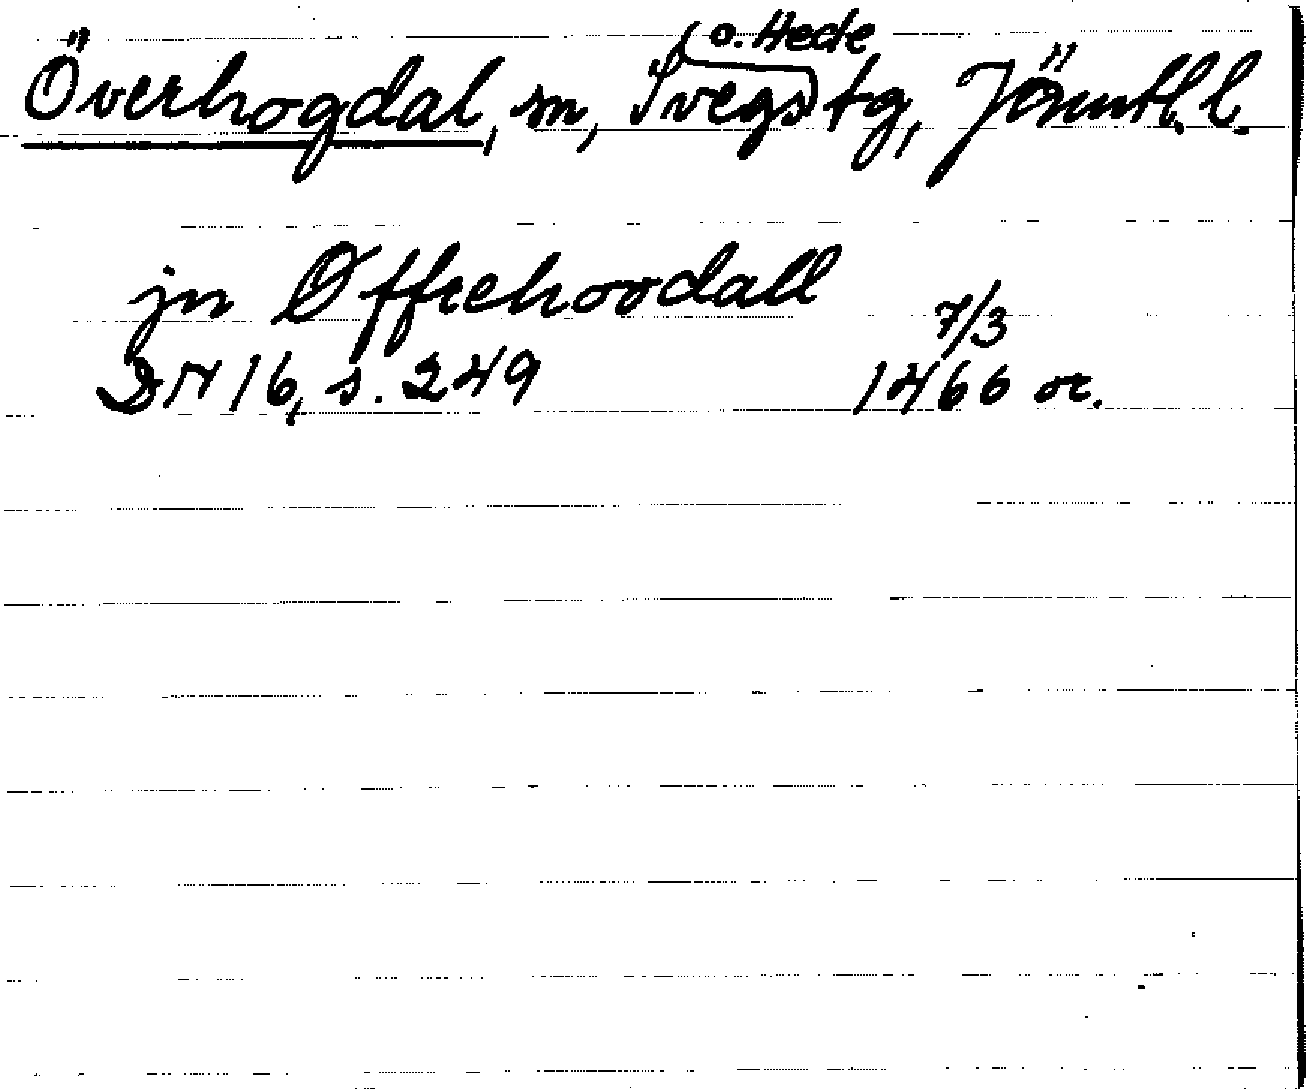 o. Hede
Överhogdal, sn, Svegs tg, Jämtl. l.
jn Øffrehoodall
7/3
DN 16, s. 249 1466 or.